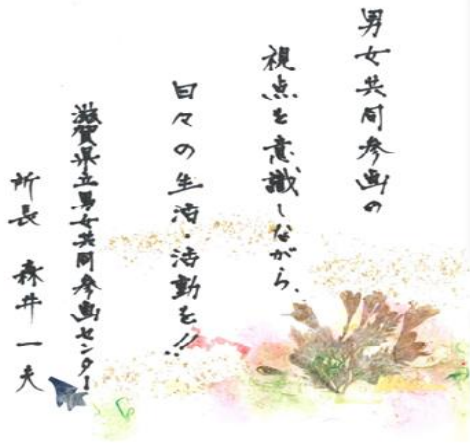 男女共同参画の
視点を意識しながら、
日々の生活・活動を!!
滋賀県立男女共同参画センター
所長 森井 一夫